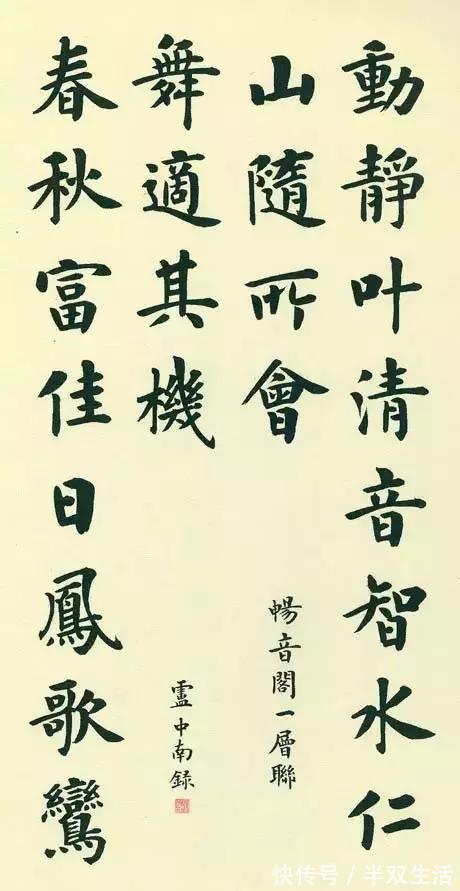 動靜叶清音智水仁
山隨所會
暢音閣一層聯
春秋富佳日鳳歌鸞
舞適其機
盧中南録
快传号 / 半双生活